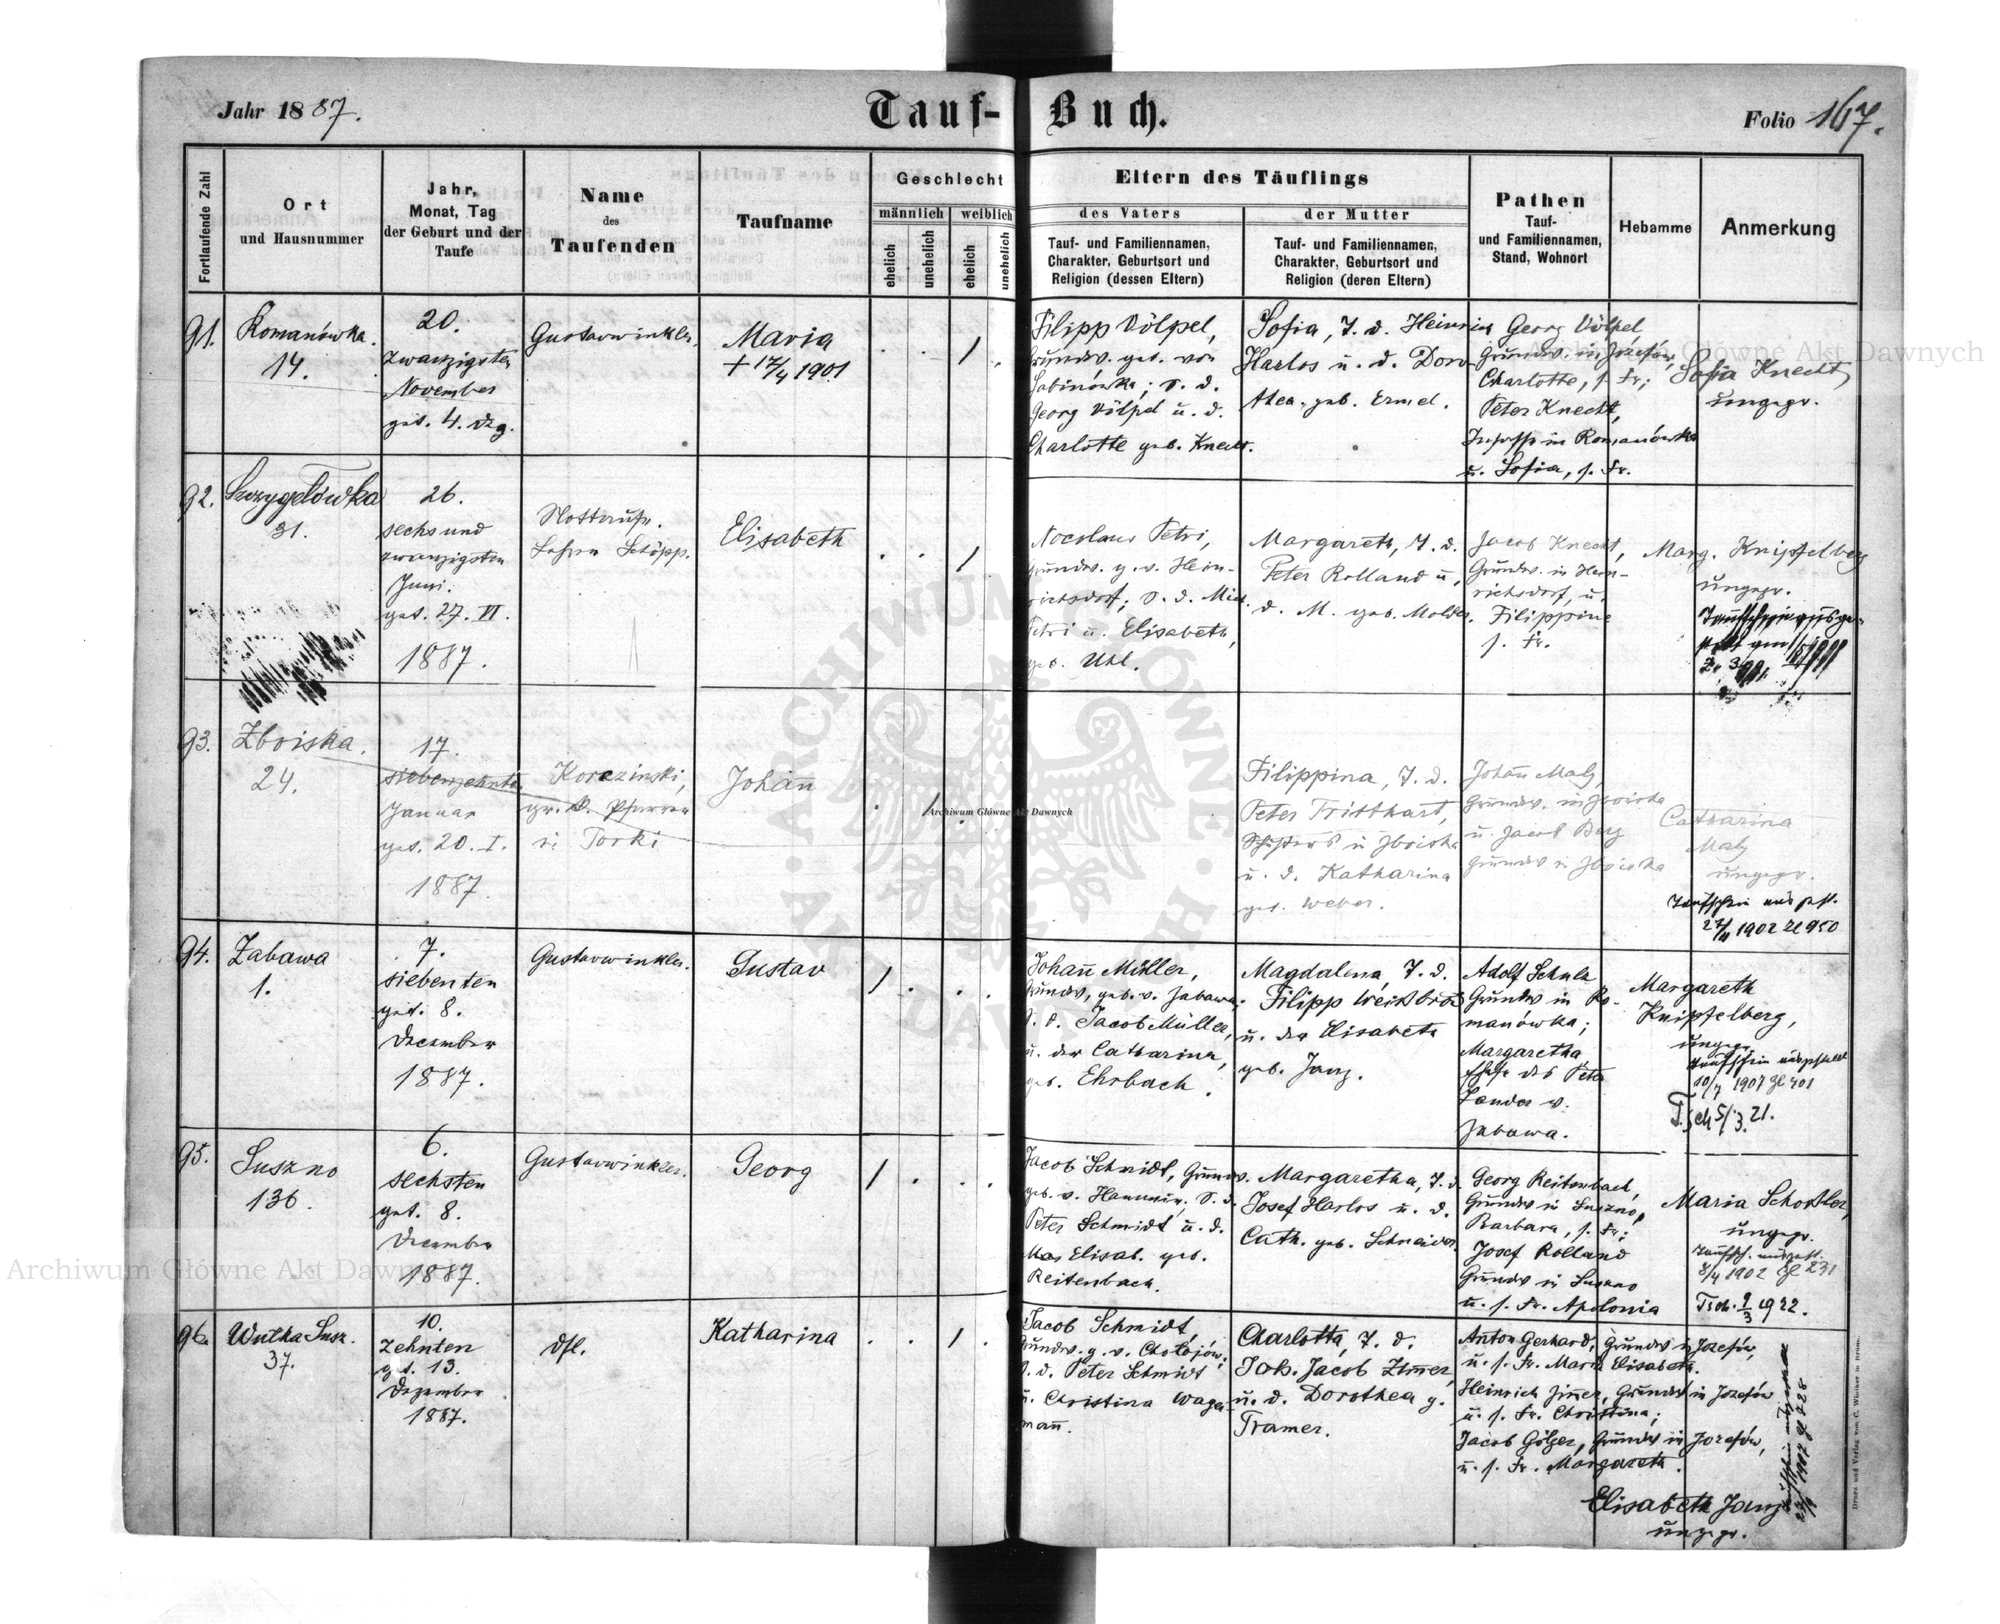 Jahr 1887.
Tauf-Buch.
Folio 167.
Fortlaufende Zahl
Ort
und Hausnummer
Jahr,
Monat, Tag
der Geburt und der
Taufe
Name
des
Taufenden
Taufname
Geschlecht
männlich
weiblich
ehelich
unehelich
ehelich
unehelich
Eltern des Täuflings
des Vaters
Tauf- und Familiennamen,
Charakter, Geburtsort und
Religion (dessen Eltern)
der Mutter
Tauf- und Familiennamen,
Charakter, Geburtsort und
Religion (deren Eltern)
Pathen
Tauf-
und Familiennamen,
Stand, Wohnort
Hebamme
Anmerkung
91.
Romanówka.
14.
20.
zwanzigsten
November
get. 4. Dzg.
Gustav Winkler.
Maria
+ 17/4 1901
Filipp Völpel,
Grundw. geb. von
Sabinówka; S. d.
Georg Völpel u. d.
Charlotte geb. Knecht.
Sofia, T. d. Heinrich
Harlos u. d. Doro-
thea geb. Ermel.
Georg Völpel
Grundw. in Józefów,
Charlotte, s. Fr;
Peter Knecht,
in Romanówka
u. Sofia, s. Fr.
Sofia Knecht,
ungepr.
92.
Szczygelówka
31.
26.
sechsund
zwanzigsten
Juni.
get. 27. VI.
1887.
Nottaufe.
Schöpp.
Elisabeth
Petri,
Grundw. g. v. Hein-
richsdorf; S. d. Mich.
Petri u. Elisabeth,
geb. Uhl.
Margareth, T. d.
Peter Rolland u.
d. M. geb. Molder.
Jacob Knecht,
Grundw. in Hein-
richsdorf, u.
Filippine
s. Fr.
Marg. Knipfelberg
ungepr.
93.
Zboiska.
24.
17.
siebenzehnten
Januar
get. 20. I.
1887.
Korczinski,
gr. k. Pfarrer
in Torki
Johann
Filippina, T. d.
Peter Tritthart,
in Zboiska
u. d. Katharina
geb. Weber.
Johann Malz,
Grundw. in Zboiska
u. Jacob Berg
Grundw in Zboiska
Catharina
Malz
ungepr.
Taufschein ausgest.
27/4 1902 Zl 950
94.
Zabawa
1.
7.
siebenten
get. 8.
December
1887.
Gustav Winkler.
Gustav
Johann Müller,
Grundw, geb. v. Zabawa;
S. d. Jacob Müller,
u. der Catharina,
geb. Ehrbach.
Magdalena, T. d.
Filipp Weissbrod
u. der Elisabeth
geb. Janz.
Adolf Schulz
Grundw in Ro-
manówka;
Margaretha
Ehefr. des Peter
Lander v.
Zabawa.
Margareth
Knipfelberg,
ungepr.
Taufschein ausgestellt
10/7 1907 Zl 401
Tsch 5/3. 21.
95.
Suszno
136.
6.
sechsten
get. 8.
December
1887.
Gustav Winkler.
Georg
Jacob Schmidt, Grundw.
geb. v. Hanunin; S. d.
Peter Schmidt u. d.
Elisab. geb.
Reitenbach.
Margaretha, T. d.
Josef Harlos u. d.
Cath. geb. Schneider.
Georg Reitenbach,
Grundw in Suszno,
Barbara, s. Fr;
Josef Rolland
Grundw in Suszno
u. s. Fr. Apolonia
Maria Schostler,
ungepr.
Taufsch. ausgest.
8/4 1902 Zl 231
Tsch. 9/3 1922.
96.
Wulka Susz.
37.
10.
Zehnten
get. 13.
Dezember
1887.
dsl.
Katharina
Jacob Schmidt,
Grundw. g. v. Chołojów;
S. d. Peter Schmidt
u. Christina Wage-
mann.
Charlotta, T. d.
Joh. Jacob Zimer,
u. d. Dorothea g.
Tramer.
Anton Gerhard, Grundw in Józefów,
u. s. Fr. Maria Elisabeth.
Heinrich Zimer, Grundw in Józefów
u. s. Fr. Christina;
Jacob Gölzer, Grundw in Józefów,
u. s. Fr. Margareth.
Elisabeth Janz
ungepr.
Druck und Verlag von C. Winiker in Brünn.
Archiwum Główne Akt Dawnych
Archiwum Główne Akt Dawnych
Archiwum Główne Akt Dawnych